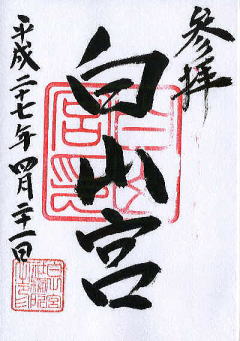 参拝
白山宮
平成二十七年四月二十一日